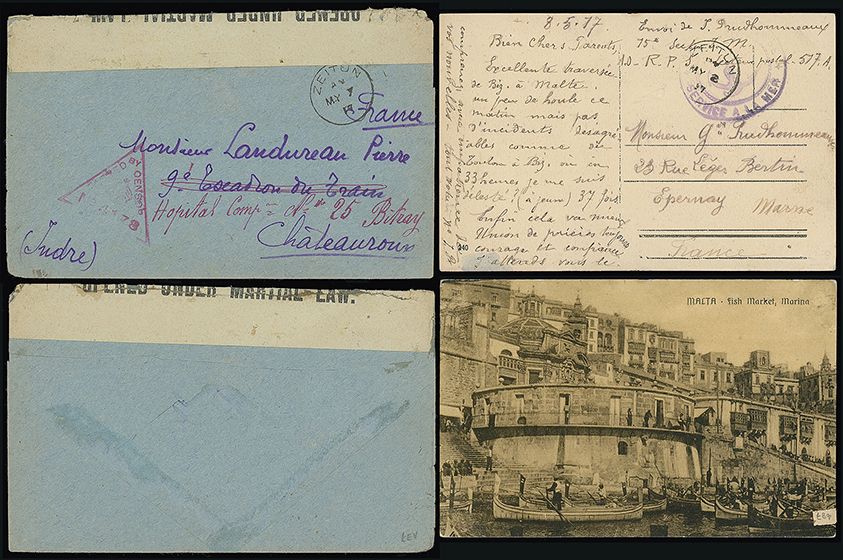 OPENED UNDER MARTIAL LAW.
ZEITUN
MY 7
17
France
Monsieur Landureau Pierre
9e Escadron du Train
Hopital Comp re No 25 Bitray
Châteauroux
(Indre)
BY CENSOR
OPENED UNDER MARTIAL LAW.
8.5.17
Bien Chers Parents,
Excellente traversée
de Biz. à Malte,
un peu de houle ce
matin mais pas
d'incidents désagré
ables comme de
Toulon à Biz. où en
33 heures je me suis
délesté (à jeun) 37 fois!
Enfin cela va mieux
Union de prières toujours
courage et confiance
J'attends vos
Envoi de J. Prudhommeaux
75e
A.D - R. P. S. postal - 517. A
ZEITUN
MY 8
17
SERVICE A LA MER
Monsieur G. Prudhommeaux
23 Rue Léger Bertin
Epernay Marne
France
240
MALTA - Fish Market, Marina